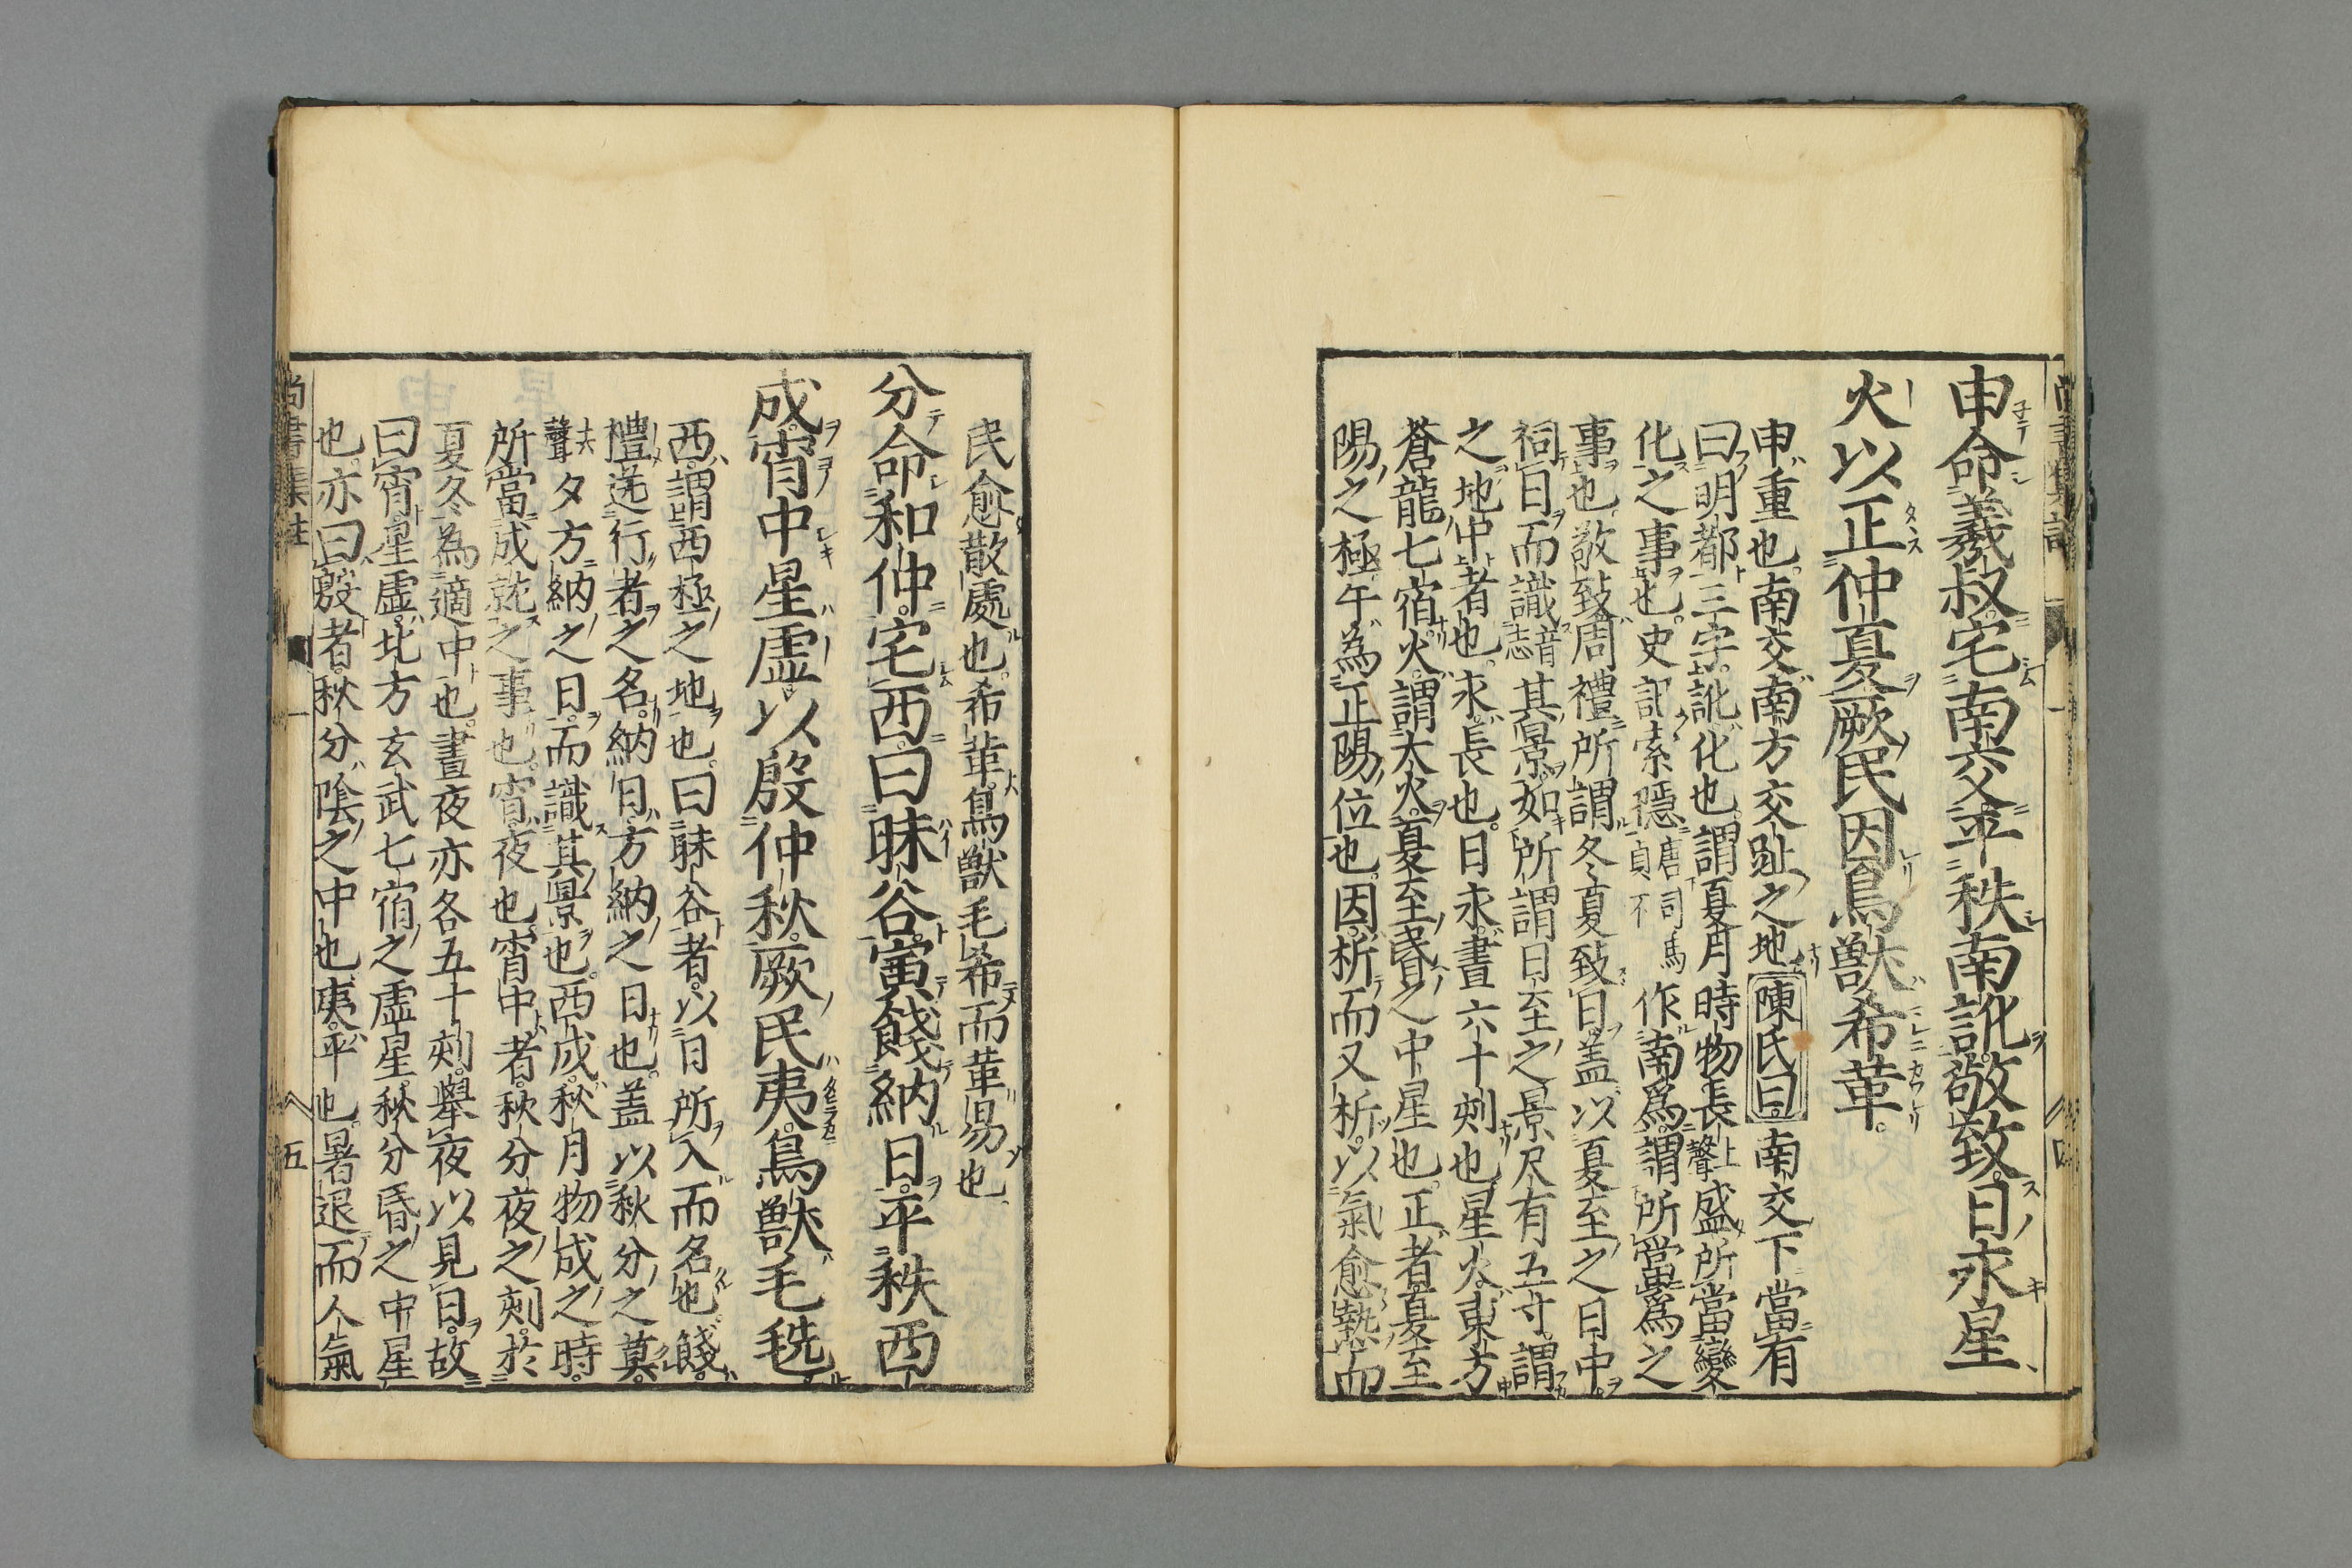 申命羲叔宅南交平秩南訛敬致日永星
火以正仲夏厥民因鳥獸希革
申重也南交南方交趾之地陳氏曰南交下當有
曰明都三字訛化也謂夏月時物長上聲盛所當變
化之事也史記索隱唐司馬貞作南爲謂所當爲之
事也敬致周禮所謂冬夏致日蓋以夏至之日中
祠日而識音志其景如所謂日至之景尺有五寸謂
之地中者也永長也日永晝六十刻也星火東方
蒼龍七宿火謂大火夏至昏之中星也正者夏至
陽之極午為正陽位也因析而又析以氣愈熱而
民愈散處也希革鳥獸毛希而革易也
分命和仲宅西曰昧谷寅餞納日平秩西
成宵中星虛以殷仲秋厥民夷鳥獸毛毨
西謂西極之地也曰昧谷者以日所入而名也餞
禮送行者之名納日方納之日也蓋以秋分之莫
去聲夕方納之日而識其景也西成秋月物成之時
所當成就之事也宵夜也宵中者秋分夜之刻於
夏冬為適中也晝夜亦各五十刻舉夜以見日故
曰宵星虛北方玄武七宿之虛星秋分昏之中星
也亦曰殷者秋分陰之中也夷平也暑退而人氣
尚書集註
五